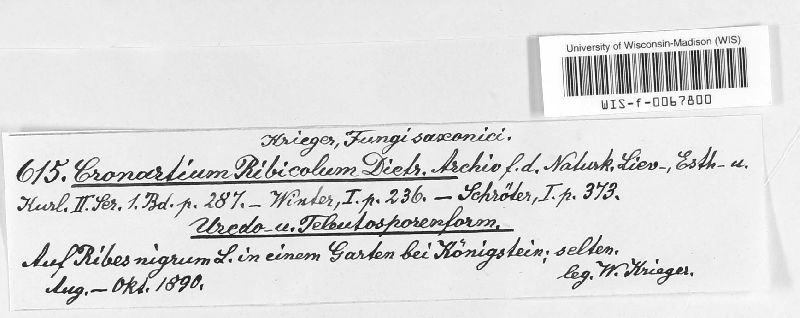 University of Wisconsin-Madison (WIS)
WIS-f-0067800
Krieger, Fungi saxonici.
615. Cronartium Ribicolum Dietr. Archiv f. d. Naturk. Liev-, Esth- u.
Kurl. II. Ser. 1. Bd. p. 287. – Winter, I. p. 236. – Schröter, I. p. 373.
Uredo- u. Teleutosporenform.
Auf Ribes nigrum L. in einem Garten bei Königstein; selten.
Aug. – Okt. 1890.
leg. W. Krieger.